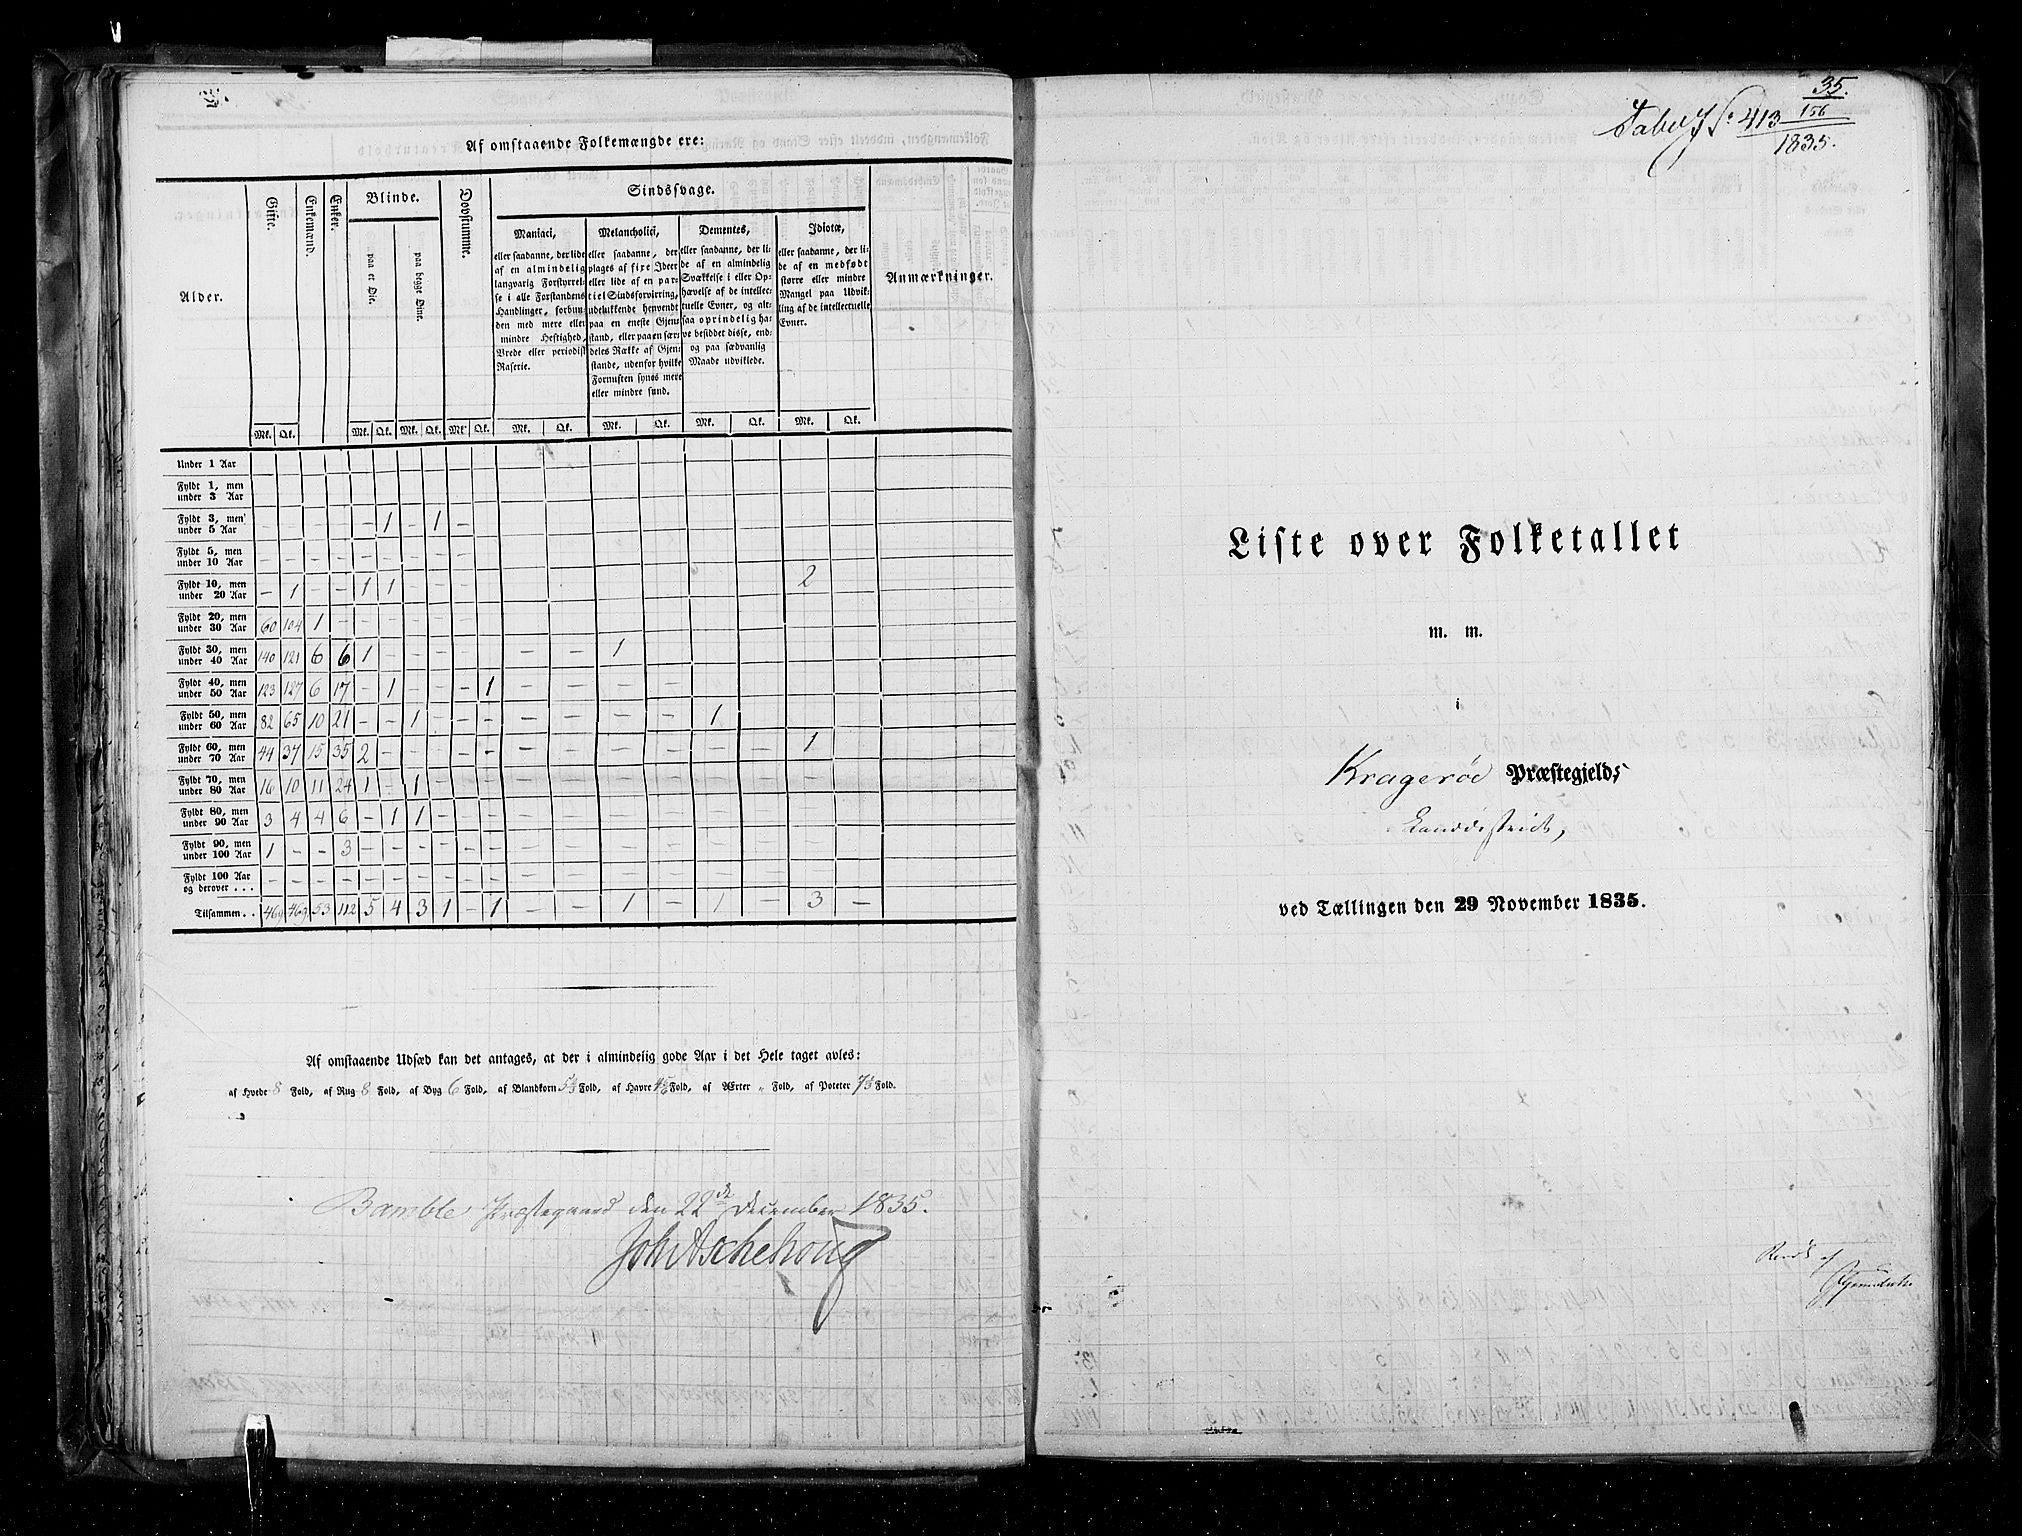 Af omstaaende Folkemængde ere:
Alder.
Gifte.
Enkemænd.
Enker.
Blinde.
paa et Øie.
paa begge Øine.
Døvstumme.
Sindssvage.
Maniaci,
eller saadanne, der lide
af en almindelig
langvarig Forstyrrel-
se i alle Forstandens
Handlinger, forbun-
den med mere eller
mindre Heftighed,
Vrede eller periodisk
Raserie.
Melancholici,
eller saadanne, der
plages af fixe Ideer
eller lide af en par-
tiel Sindsforvirring,
udelukkende henvendt
paa en eneste Gjen-
stand, eller paa en sær-
deles Række af Gjen-
stande, udenfor hvilke
Fornuften synes mere
eller mindre sund.
Dementes,
eller saadanne, der li-
de af en almindelig
Svækkelse i eller Op-
hævelse af de intellec-
tuelle Evner, og alt-
saa oprindelig ha-
ve besiddet disse, end-
og paa sædvanlig
Maade udviklede.
Idiotæ,
eller saadanne, der li-
de af en medfødt
større eller mindre
Mangel paa Udvik-
ling af de intellectuelle
Evner.
Anmærkninger.
Mk. Qk. Mk. Qk. Mk. Qk. Mk. Qk. Mk. Qk. Mk. Qk. Mk. Qk. Mk. Qk.
Under 1 Aar
Fyldt 1, men
under 3 Aar
Fyldt 3, men
under 5 Aar – – – – – 1 – 1 –
Fyldt 5, men
under 10 Aar – – – – – – – – – –
Fyldt 10, men
under 20 Aar – 1 – – 1 1 – – – – 2
Fyldt 20, men
under 30 Aar 60 104 1 – – – – – – –
Fyldt 30, men
under 40 Aar 140 121 6 6 1 – – – – – – – 1
Fyldt 40, men
under 50 Aar 123 127 6 17 – 1 – – – 1 – – – –
Fyldt 50, men
under 60 Aar 82 65 10 21 – – 1 – – – – – – – 1
Fyldt 60, men
under 70 Aar 44 37 15 35 2 – – – – – – – – – – – 1
Fyldt 70, men
under 80 Aar 16 10 11 24 1 – 1 – – – – – – – – – – –
Fyldt 80, men
under 90 Aar 3 4 4 6 – 1 1 – – – – – – – – – – –
Fyldt 90, men
under 100 Aar 1 – – 3 – – – – – – – – – – – – – –
Fyldt 100 Aar
og derover . . . – – – – – – – – – – – – – – – – – –
Tilsammen . . 469 469 53 112 5 4 3 1 – 1 – – 1 – 1 – 3 –
Af omstaaende Udsæd kan det antages, at der i almindelig gode Aar i det Hele taget avles:
af Hvede 8 Fold, af Rug 8 Fold, af Byg 6 Fold, af Blandkorn 5 Fold, af Havre Fold, af Ærter „ Fold, af Poteter Fold.
Bamble Præstegaard den 22de December 1835.
Joh Aschehoug
35.
Tabel No 413 156
1835.
Liste over Folketallet
m. m.
i
Kragerøe Præstegjelds
Landdistrict,
ved Tællingen den 29 November 1835.
af